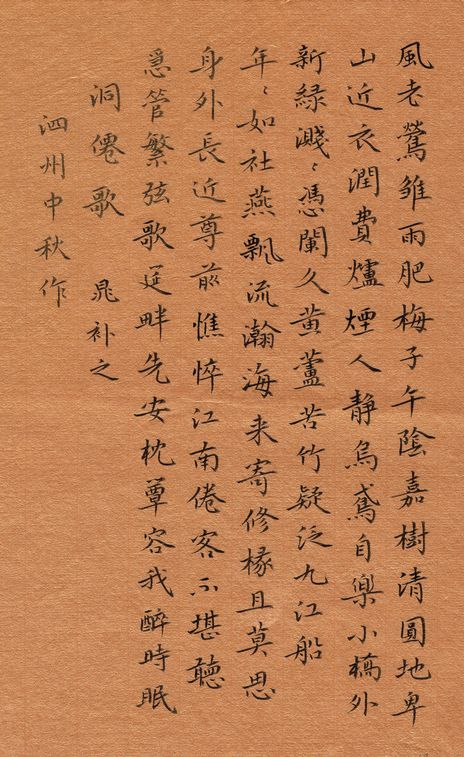 風老鶯雛雨肥梅子午陰嘉樹清圓地卑
山近衣潤費爐煙人靜烏鳶自樂小橋外
新緑濺〻憑闌久黃蘆苦竹疑泛九江船
年〻如社燕飄流瀚海来寄修椽且莫思
身外長近尊前憔悴江南倦客不堪聽
急管繁弦歌筵畔先安枕簟容我醉時眠
洞僊歌 晁补之
泗州中秋作